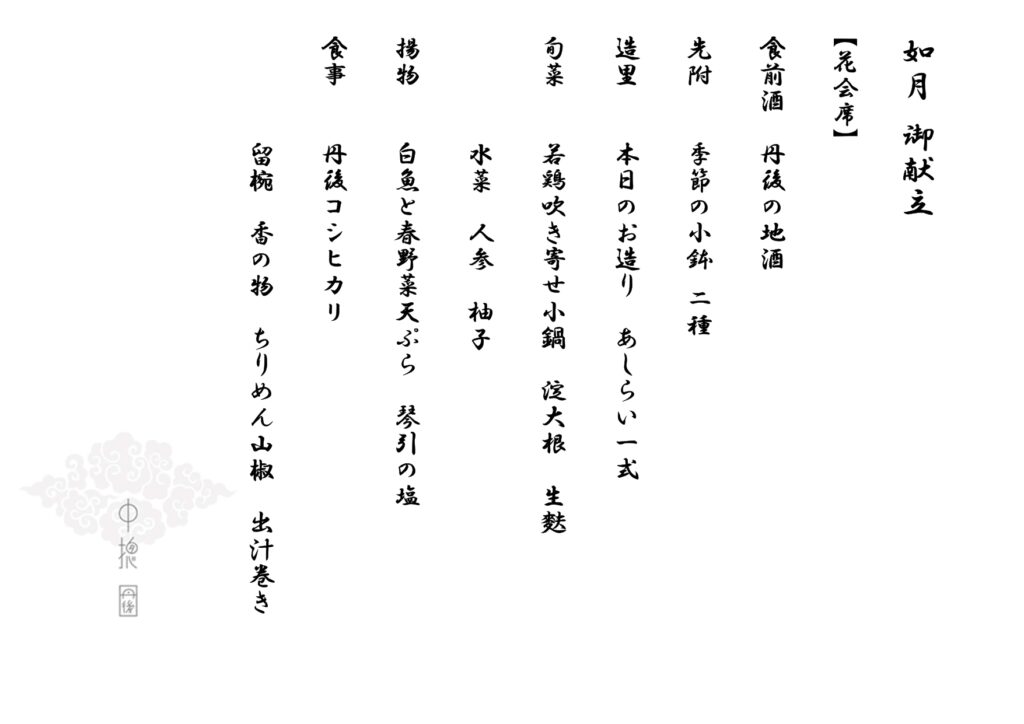 如月 御献立
【花会席】
食前酒 丹後の地酒
先附 季節の小鉢 二種
造里 本日のお造り あしらい一式
旬菜 若鶏吹き寄せ小鍋 淀大根 生麩
水菜 人参 柚子
揚物 白魚と春野菜天ぷら 琴引の塩
食事 丹後コシヒカリ
留椀 香の物 ちりめん山椒 出汁巻き
丹後